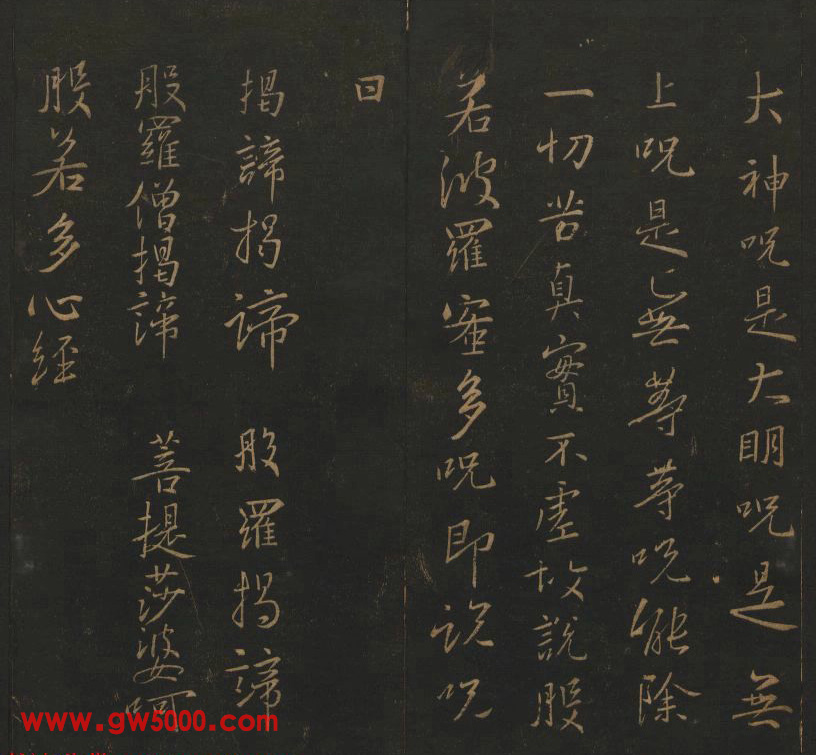 大神呪是大明呪是無
上呪是無等等呪能除
一切苦真實不虛故說般
若波羅蜜多呪即說呪
曰
揭諦揭諦 般羅揭諦
般羅僧揭諦 菩提莎婆呵
般若多心經
www.gw5000.com